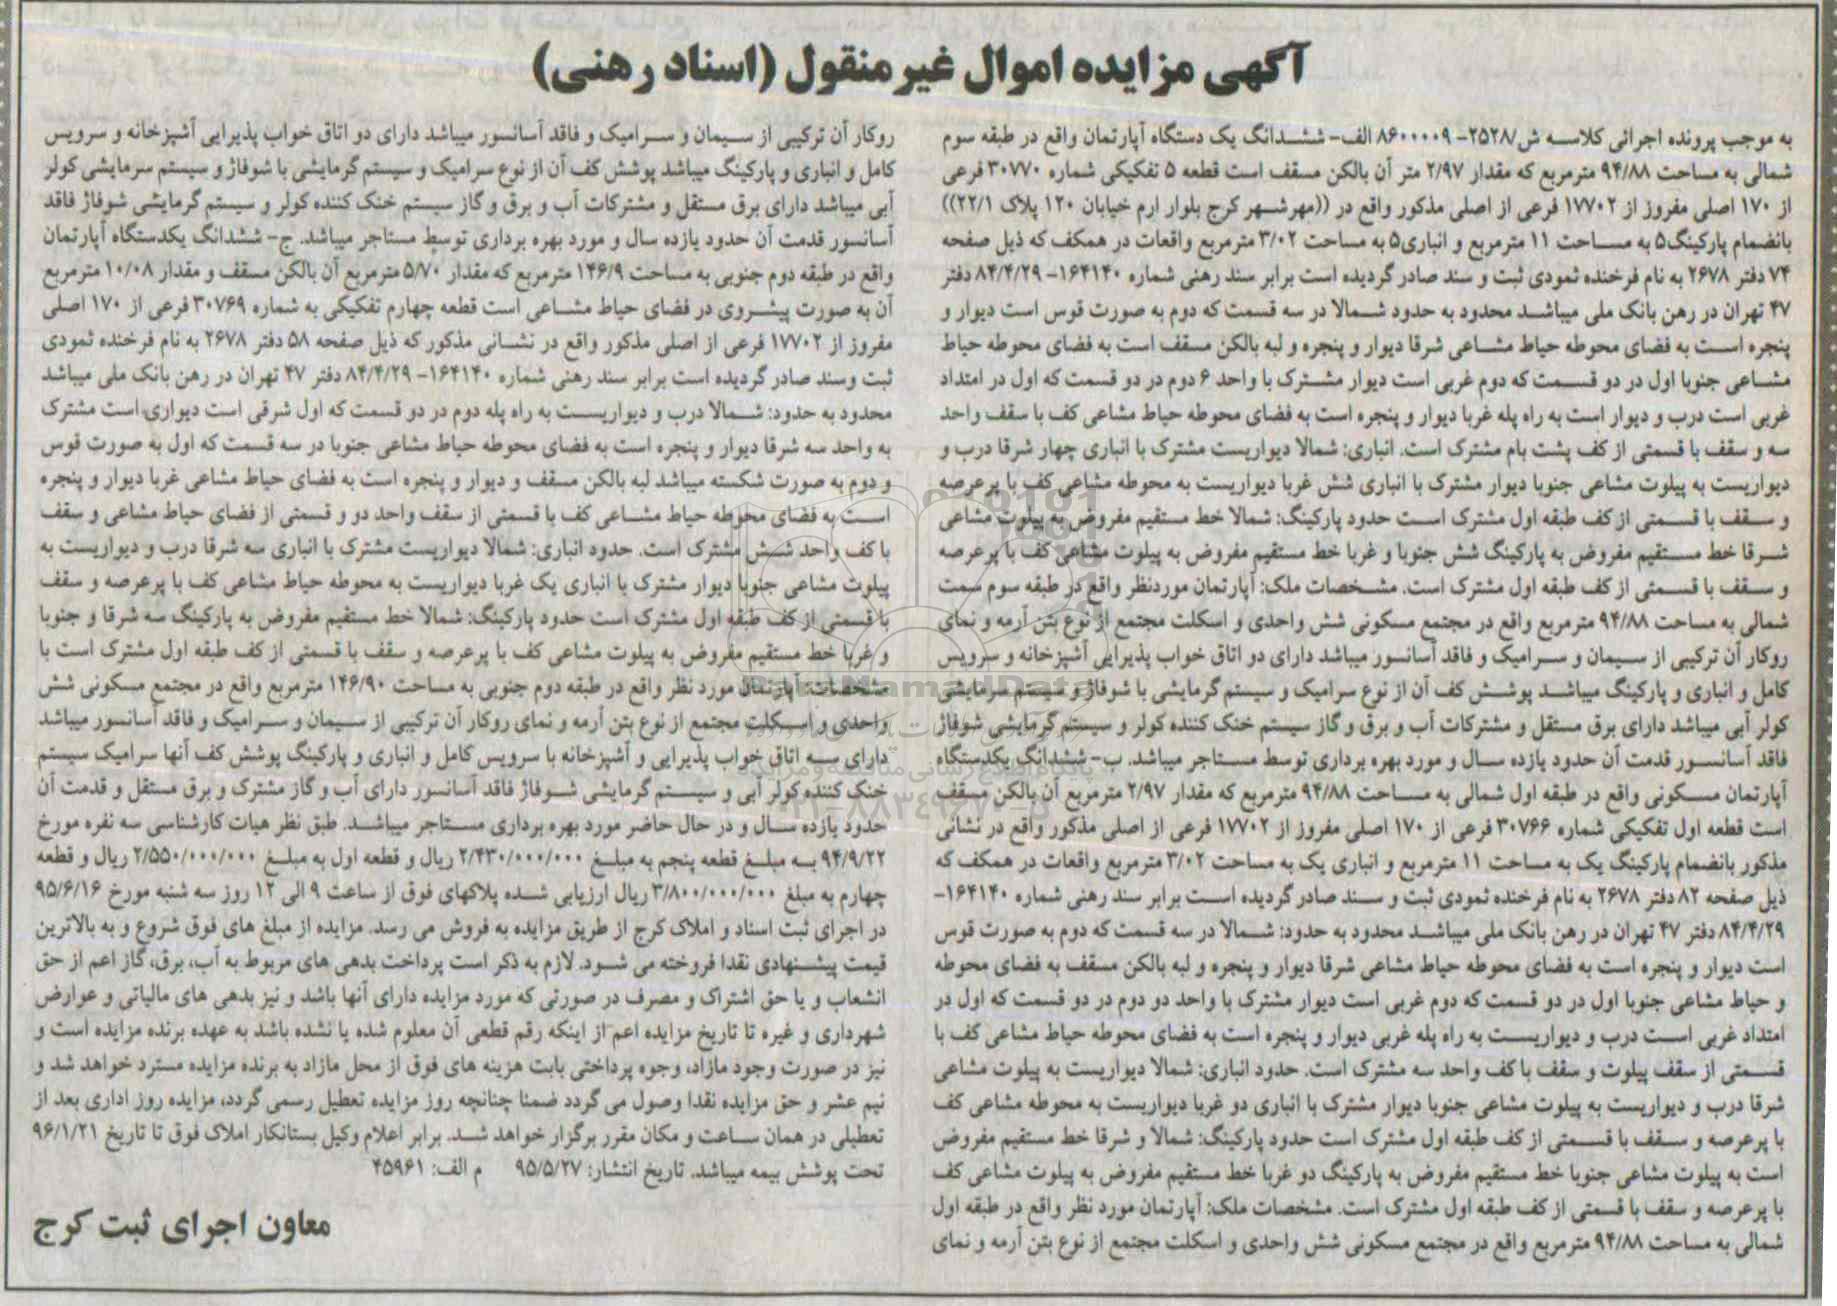 آگهی مزایده اموال غیر منقول (اسناد رهنی)
به موجب پرونده اجرائی کلاسه ش/۲۵۲۸- ۸۶۰۰۰۰۹ الف- ششدانگ یک دستگاه آپارتمان واقع در طبقه سوم
شمالی به مساحت ۹۴/۸۸ مترمربع که مقدار ۲/۹۷ متر آن بالکن مسقف است قطعه ۵ تفکیکی شماره ۳۰۷۷۰ فرعی
از ۱۷۰ اصلی مفروز از ۱۷۷۰۲ فرعی از اصلی مذکور واقع در ((مهرشهر کرج بلوار ارم خیابان ۱۲۰ پلاک ۲۲/۱))
بانضمام پارکینگ۵ به مساحت ۱۱ مترمربع و انباری۵ به مساحت ۳/۰۲ مترمربع واقعات در همکف که ذیل صفحه
۷۴ دفتر ۲۶۷۸ به نام فرخنده ثمودی ثبت و سند صادر گردیده است برابر سند رهنی شماره ۱۶۴۱۴۰- ۸۴/۴/۲۹ دفتر
۴۷ تهران در رهن بانک ملی میباشد محدود به حدود شمالا در سه قسمت که دوم به صورت قوس است دیوار و
پنجره است به فضای محوطه حیاط مشاعی شرقا دیوار و پنجره و لبه بالکن مسقف است به فضای محوطه حیاط
مشاعی جنوبا اول در دو قسمت که دوم غربی است دیوار مشترک با واحد ۶ دوم در دو قسمت که اول در امتداد
غربی است درب و دیوار است به راه پله غربا دیوار و پنجره است به فضای محوطه حیاط مشاعی کف با سقف واحد
سه و سقف با قسمتی از کف پشت بام مشترک است. انباری: شمالا دیواریست مشترک با انباری چهار شرقا درب و
دیواریست به پیلوت مشاعی جنوبا دیوار مشترک با انباری شش غربا دیواریست به محوطه مشاعی کف با پرعرصه
و سقف با قسمتی از کف طبقه اول مشترک است حدود پارکینگ: شمالا خط مستقیم مفروض به پیلوت مشاعی
شرقا خط مستقیم مفروض به پارکینگ شش جنوبا و غربا خط مستقیم مفروض به پیلوت مشاعی کف با پرعرصه
و سقف با قسمتی از کف طبقه اول مشترک است. مشخصات ملک: آپارتمان موردنظر واقع در طبقه سوم سمت
شمالی به مساحت ۹۴/۸۸ مترمربع واقع در مجتمع مسکونی شش واحدی و اسکلت مجتمع از نوع بتن آرمه و نمای
روکار آن ترکیبی از سیمان و سرامیک و فاقد آسانسور میباشد دارای دو اتاق خواب پذیرایی آشپزخانه و سرویس
کامل و انباری و پارکینگ میباشد پوشش کف آن از نوع سرامیک و سیستم گرمایشی با شوفاژ و سیستم سرمایشی
کولر آبی میباشد دارای برق مستقل و مشترکات آب و برق و گاز سیستم خنک کننده کولر و سیستم گرمایشی شوفاژ
فاقد آسانسور قدمت آن حدود یازده سال و مورد بهره برداری توسط مستاجر میباشد. ب- ششدانگ یکدستگاه
آپارتمان مسکونی واقع در طبقه اول شمالی به مساحت ۹۴/۸۸ مترمربع که مقدار ۲/۹۷ مترمربع آن بالکن مسقف
است قطعه اول تفکیکی شماره ۳۰۷۶۶ فرعی از ۱۷۰ اصلی مفروز از ۱۷۷۰۲ فرعی از اصلی مذکور واقع در نشانی
مذکور بانضمام پارکینگ یک به مساحت ۱۱ مترمربع و انباری یک به مساحت ۳/۰۲ مترمربع واقعات در همکف که
ذیل صفحه ۸۲ دفتر ۲۶۷۸ به نام فرخنده ثمودی ثبت و سند صادر گردیده است برابر سند رهنی شماره ۱۶۴۱۴۰-
۸۴/۴/۲۹ دفتر ۴۷ تهران در رهن بانک ملی میباشد محدود به حدود: شمالا در سه قسمت که دوم به صورت قوس
است دیوار و پنجره است به فضای محوطه حیاط مشاعی شرقا دیوار و پنجره و لبه بالکن مسقف به فضای محوطه
و حیاط مشاعی جنوبا اول در دو قسمت که دوم غربی است دیوار مشترک با واحد دو دوم در دو قسمت که اول در
امتداد غربی است درب و دیواریست به راه پله غربی دیوار و پنجره است به فضای محوطه حیاط مشاعی کف با
قسمتی از سقف پیلوت و سقف با کف واحد سه مشترک است. حدود انباری: شمالا دیواریست به پیلوت مشاعی
شرقا درب و دیواریست به پیلوت مشاعی جنوبا دیوار مشترک با انباری دو غربا دیواریست به محوطه مشاعی کف
با پرعرصه و سقف با قسمتی از کف طبقه اول مشترک است حدود پارکینگ: شمالا و شرقا خط مستقیم مفروض
است به پیلوت مشاعی جنوبا خط مستقیم مفروض به پارکینگ دو غربا خط مستقیم مفروض به پیلوت مشاعی کف
با پرعرصه و سقف با قسمتی از کف طبقه اول مشترک است. مشخصات ملک: آپارتمان مورد نظر واقع در طبقه اول
شمالی به مساحت ۹۴/۸۸ مترمربع واقع در مجتمع مسکونی شش واحدی و اسکلت مجتمع از نوع بتن آرمه و نمای
روکار آن ترکیبی از سیمان و سرامیک و فاقد آسانسور میباشد دارای دو اتاق خواب پذیرایی آشپزخانه و سرویس
کامل و انباری و پارکینگ میباشد پوشش کف آن از نوع سرامیک و سیستم گرمایشی با شوفاژ و سیستم سرمایشی کولر
آبی میباشد دارای برق مستقل و مشترکات آب و برق و گاز سیستم خنک کننده کولر و سیستم گرمایشی شوفاژ فاقد
آسانسور قدمت آن حدود یازده سال و مورد بهره برداری توسط مستاجر میباشد. ج- ششدانگ یکدستگاه آپارتمان
واقع در طبقه دوم جنوبی به مساحت ۱۴۶/۹ مترمربع که مقدار ۵/۷۰ مترمربع آن بالکن مسقف و مقدار ۱۰/۰۸ مترمربع
آن به صورت پیشروی در فضای حیاط مشاعی است قطعه چهارم تفکیکی به شماره ۳۰۷۶۹ فرعی از ۱۷۰ اصلی
مفروز از ۱۷۷۰۲ فرعی از اصلی مذکور واقع در نشانی مذکور که ذیل صفحه ۵۸ دفتر ۲۶۷۸ به نام فرخنده ثمودی
ثبت وسند صادر گردیده است برابر سند رهنی شماره ۱۶۴۱۴۰- ۸۴/۴/۲۹ دفتر ۴۷ تهران در رهن بانک ملی میباشد
محدود به حدود: شمالا درب و دیواریست به راه پله دوم در دو قسمت که اول شرقی است دیواری است مشترک
به واحد سه شرقا دیوار و پنجره است به فضای محوطه حیاط مشاعی جنوبا در سه قسمت که اول به صورت قوس
و دوم به صورت شکسته میباشد لبه بالکن مسقف و دیوار و پنجره است به فضای حیاط مشاعی غربا دیوار و پنجره
است به فضای محوطه حیاط مشاعی کف با قسمتی از سقف واحد دو و قسمتی از فضای حیاط مشاعی و سقف
با کف واحد شش مشترک است. حدود انباری: شمالا دیواریست مشترک با انباری سه شرقا درب و دیواریست به
پیلوت مشاعی جنوبا دیوار مشترک با انباری یک غربا دیواریست به محوطه حیاط مشاعی کف با پرعرصه و سقف
با قسمتی از کف طبقه اول مشترک است حدود پارکینگ: شمالا خط مستقیم مفروض به پارکینگ سه شرقا و جنوبا
و غربا خط مستقیم مفروض به پیلوت مشاعی کف با پرعرصه و سقف با قسمتی از کف طبقه اول مشترک است با
مشخصات: آپارتمان مورد نظر واقع در طبقه دوم جنوبی به مساحت ۱۴۶/۹۰ مترمربع واقع در مجتمع مسکونی شش
واحدی و اسکلت مجتمع از نوع بتن آرمه و نمای روکار آن ترکیبی از سیمان و سرامیک و فاقد آسانسور میباشد
دارای سه اتاق خواب پذیرایی و آشپزخانه با سرویس کامل و انباری و پارکینگ پوشش کف آنها سرامیک سیستم
خنک کننده کولر آبی و سیستم گرمایشی شوفاژ فاقد آسانسور دارای آب و گاز مشترک و برق مستقل و قدمت آن
حدود یازده سال و در حال حاضر مورد بهره برداری مستاجر میباشد. طبق نظر هیات کارشناسی سه نفره مورخ
۹۴/۹/۲۲ به مبلغ قطعه پنجم به مبلغ ۲/۴۳۰/۰۰۰/۰۰۰ ریال و قطعه اول به مبلغ ۲/۵۵۰/۰۰۰/۰۰۰ ریال و قطعه
چهارم به مبلغ ۳/۸۰۰/۰۰۰/۰۰۰ ریال ارزیابی شده پلاکهای فوق از ساعت ۹ الی ۱۲ روز سه شنبه مورخ ۹۵/۶/۱۶
در اجرای ثبت اسناد و املاک کرج از طریق مزایده به فروش می رسد. مزایده از مبلغ های فوق شروع و به بالاترین
قیمت پیشنهادی نقدا فروخته می شود. لازم به ذکر است پرداخت بدهی های مربوط به آب، برق، گاز اعم از حق
انشعاب و یا حق اشتراک و مصرف در صورتی که مورد مزایده دارای آنها باشد و نیز بدهی های مالیاتی و عوارض
شهرداری و غیره تا تاریخ مزایده اعم از اینکه رقم قطعی آن معلوم شده یا نشده باشد به عهده برنده مزایده است و
نیز در صورت وجود مازاد، وجوه پرداختی بابت هزینه های فوق از محل مازاد به برنده مزایده مسترد خواهد شد و
نیم عشر و حق مزایده نقدا وصول می گردد ضمنا چنانچه روز مزایده تعطیل رسمی گردد، مزایده روز اداری بعد از
تعطیلی در همان ساعت و مکان مقرر برگزار خواهد شد. برابر اعلام وکیل بستانکار املاک فوق تا تاریخ ۹۶/۱/۲۱
تحت پوشش بیمه میباشد. تاریخ انتشار: ۹۵/۵/۲۷ م الف: ۴۵۹۶۱
معاون اجرای ثبت کرج